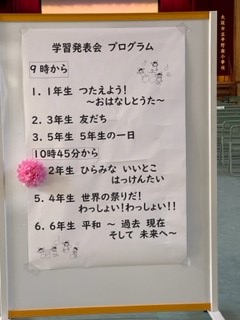 学習発表会 プログラム
9時から
1. 1年生 つたえよう!
～おはなしとうた～
2. 3年生 友だち
3. 5年生 5年生の一日
10時45分から
2年生 ひらみな いいとこ
はっけんたい
5. 4年生 世界の祭りだ!
わっしょい!わっしょい!!
6. 6年生 平和 ～ 過去 現在
そして 未来へ～